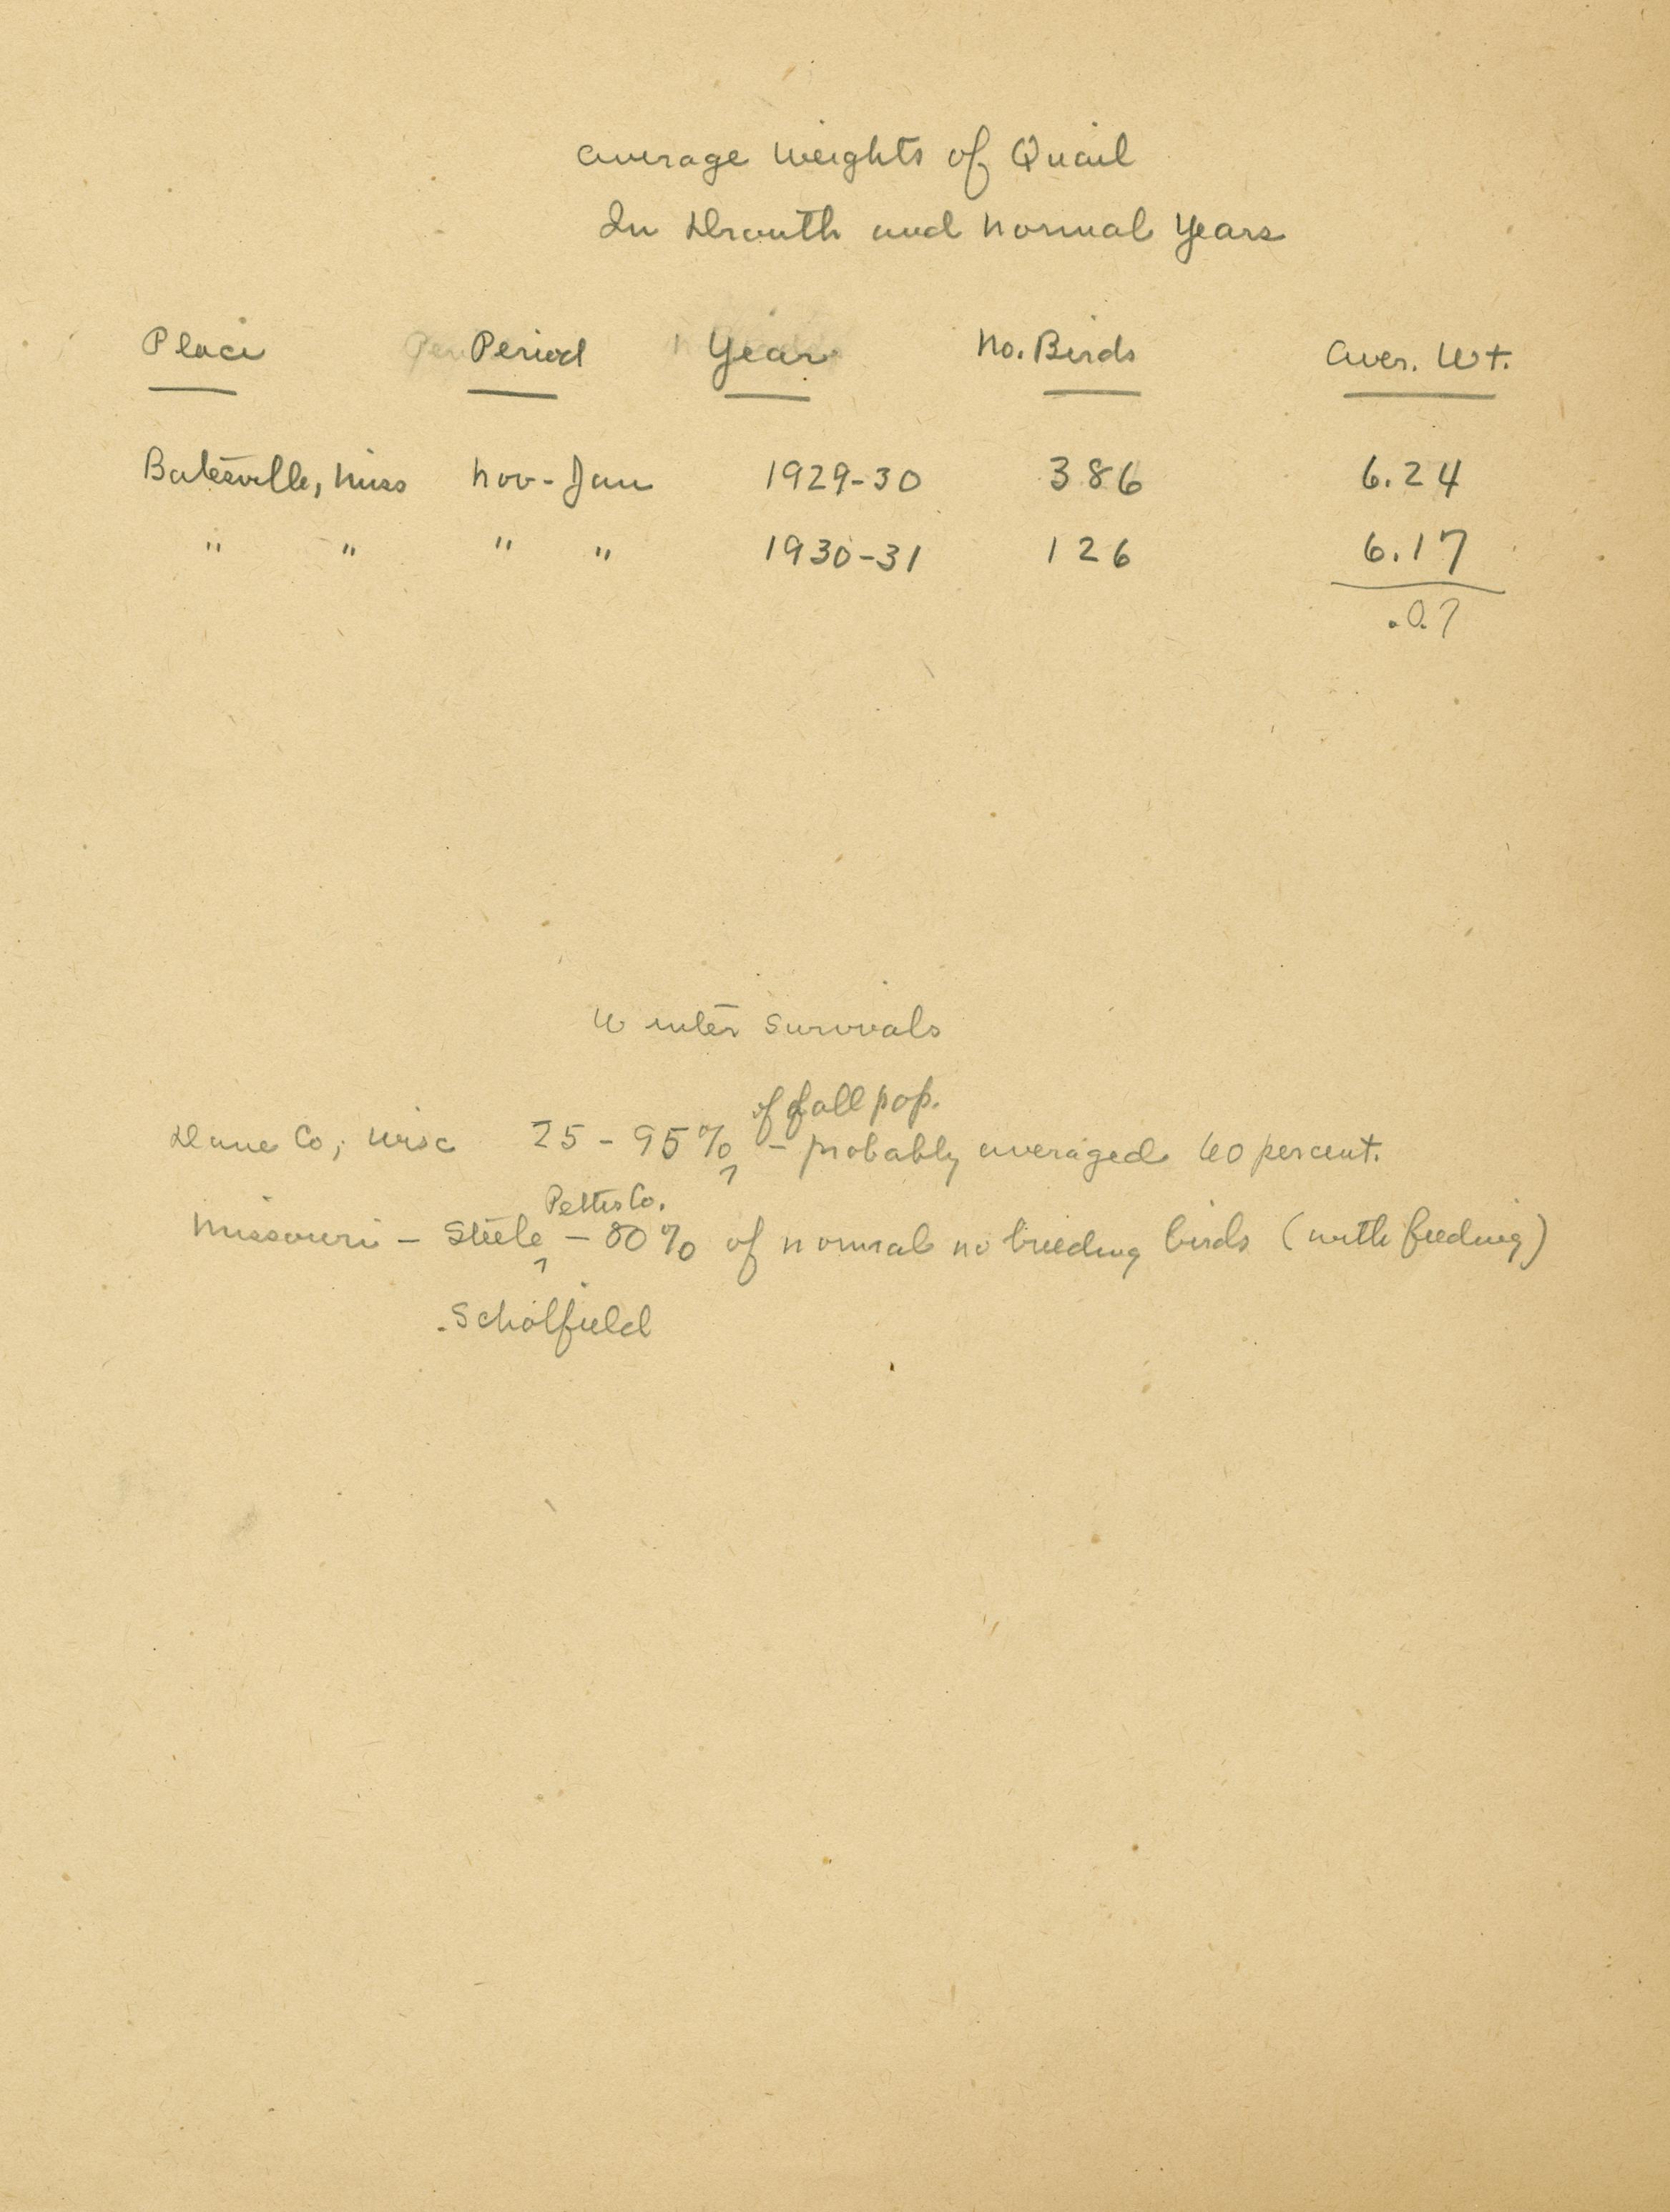 Average Weights of Quail
In Drouth and Normal Years
Place Period Year No. Birds Aver. Wt.
Batesville, Miss Nov-Jan 1929-30 386 6.24
" " " " 1930-31 126 6.17
.07
Winter Survivals
of fall pop.
Dane Co, Wisc 25 - 95% - probably averaged 60 percent.
Pettis Co.
Missouri - Steele - 80% of normal no breeding birds (with feeding)
Scholfield